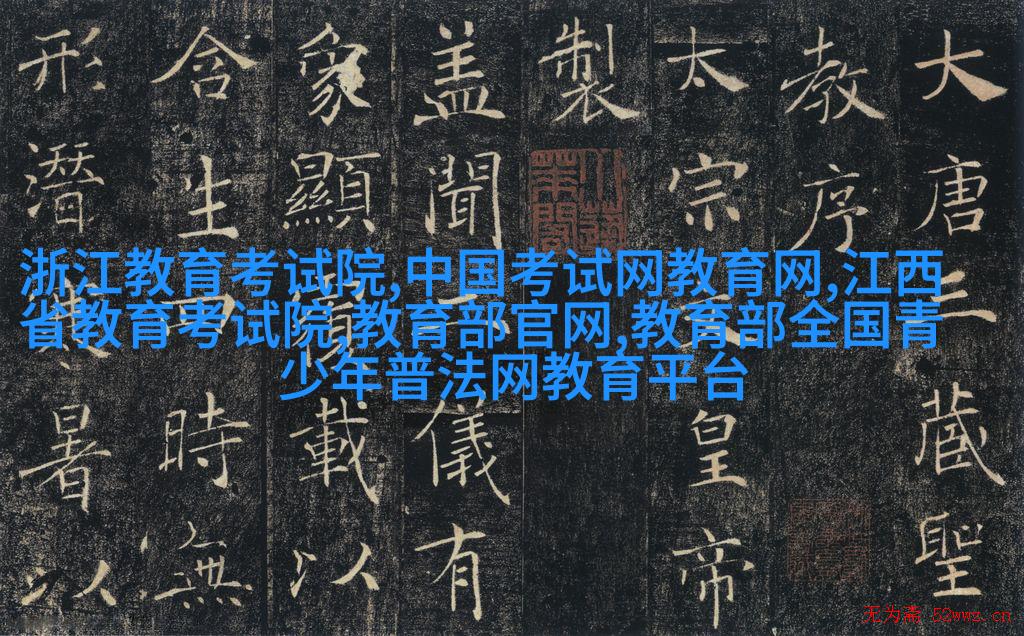 大唐三藏聖
教序
太宗文皇帝
製
盖聞二儀有
象顯覆載以
含生四時無
形潛寒暑以
浙江教育考试院,中国考试网教育网,江西
省教育考试院,教育部官网,教育部全国青
少年普法网教育平台
无为斋 52wwz.cn